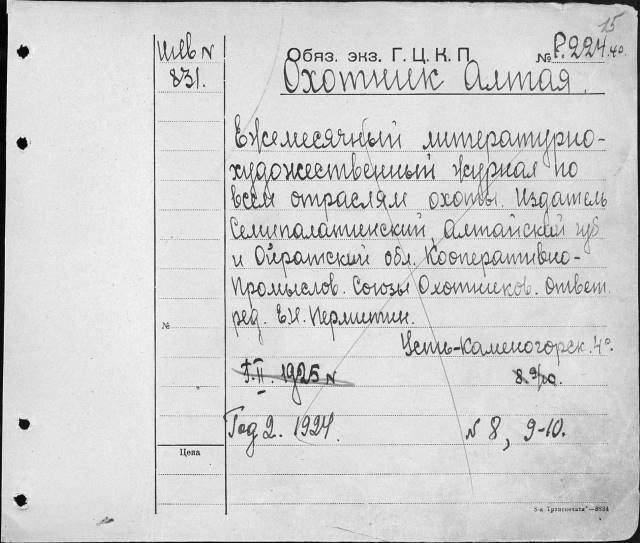 15
Шев N
831.
Обяз. экз. Г. Ц. К. П.
№ Р.224.40.
Охотник Алтая.
Ежемесячный литературно-
художественный журнал по
всем отраслям охоты. Издатель
Семипалатинский, Алтайский губ
и Ойратский обл. Кооперативно-
Промыслов. Союзы Охотников. Ответ.
ред. Е.Н. Пермитин.
№
Усть-Каменогорск. 4º.
II. 1925 N
Год 2. 1924. N 8, 9-10.
Цена
5-я Транспечать"—8834